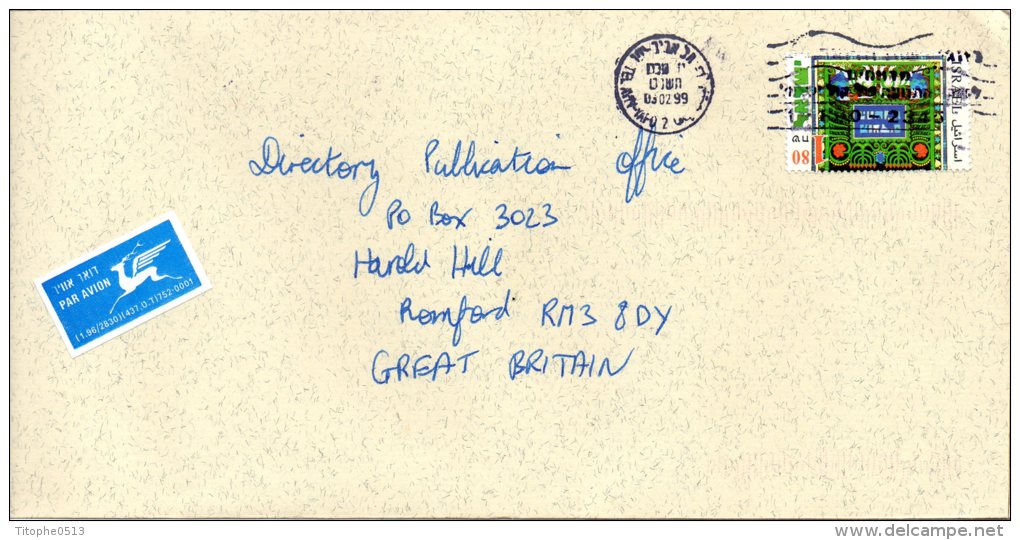 תל אביב-יפו
03 02 99
TEL AVIV-YAFO 2
ISRAEL اسرائيل
80
Directory Publication Office
PO Box 3023
Harold Hill
Romford RM3 8DY
GREAT BRITAIN
דואר אוויר
PAR AVION
(1.96/2830)(437.ט.ד)752-0001
Titophe0513
www.delcampe.net